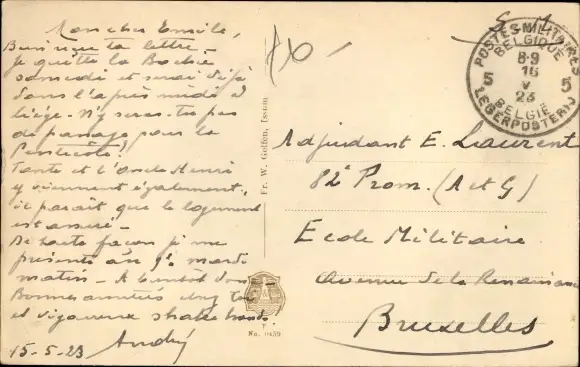 Mon cher Emile,
Bien reçu ta lettre.
Je quitte la Bochie
samedi et serai déjà
dans l'après midi à
Liège. N'y seras-tu pas
de passage pour la
Pentecôte?
Tante et l'Oncle Henri
y viennent également,
il paraît que le logement
est assuré.
De toute façon je me
présente au 9e mardi
matin. A bientôt donc
Bonnes amitiés chez toi
et vigoureux shake hands
15-5-23 André
Fr. W. Goffen, Issum
No. 0459
S. M.
POSTES MILITAIRES
BELGIQUE
8-9
16
V
23
5 5
BELGIË
LEGERPOSTERIJ
Adjudant E. Laurent
82e Prom. (A et G)
Ecole Militaire
Avenue de la Renaissance
Bruxelles